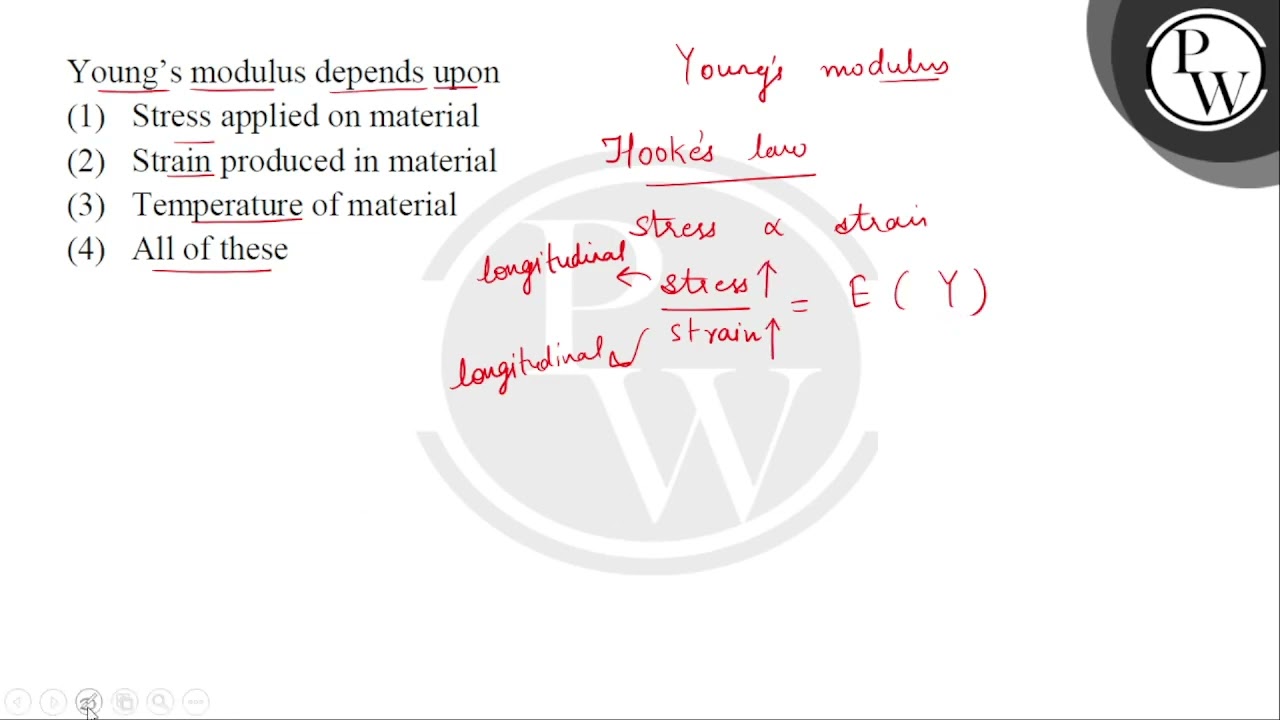 Young's modulus depends upon
(1) Stress applied on material
(2) Strain produced in material
(3) Temperature of material
(4) All of these
Young's modulus
Hooke's law
stress ∝ strain
longitudinal ← stress↑
strain↑
= E ( Y )
longitudinal
P
W
P
W